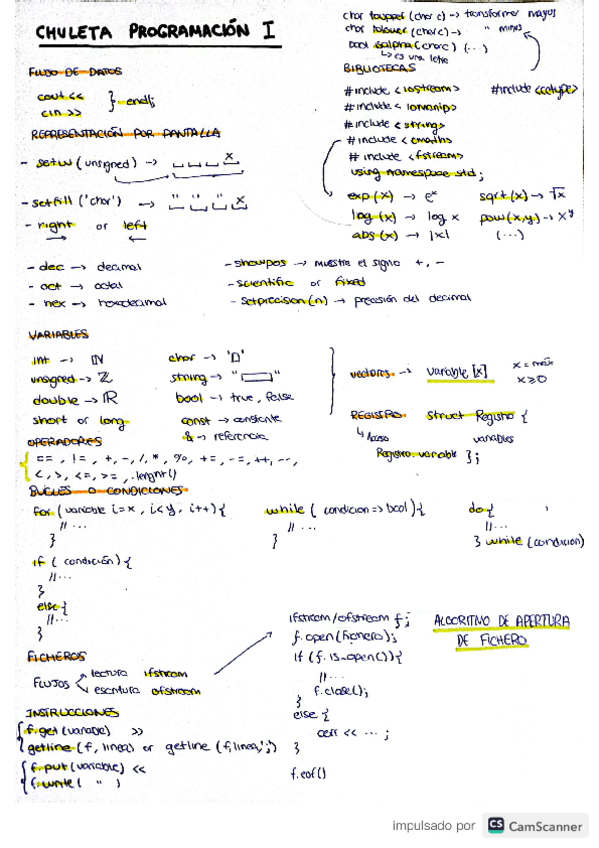 CHULETA PROGRAMACIÓN I
FLUJO DE DATOS
cout <<
cin >>
} endl;
REPRESENTACIÓN POR PANTALLA
- setw (unsigned) → _ _ _ x
- setfill ('char') → " " " x
- right or left
- dec → decimal
- oct → octal
- hex → hexadecimal
- showpos → muestre el signo +, -
- scientific or fixed
- setprecision (n) → precisión del decimal
char toupper (char c) → transformar mayus
char tolower (char c) → " minus
bool isalpha (char c) (...)
↳ es una letra
BIBLIOTECAS
#include <iostream>
#include <cctype>
#include <iomanip>
#include <string>
#include <cmath>
#include <fstream>
using namespace std;
exp (x) → eˣ
sqrt (x) → √x
log (x) → log x
pow (x,y) → xʸ
abs (x) → |x|
(...)
VARIABLES
int → ℕ
unsigned → ℤ
double → ℝ
short or long
char → '▯'
string → "▭"
bool → true, false
const → constante
& → referencia
vectores → variable [x]
x = máx
x ≥ 0
REGISTRO: struct Registro {
variables
};
↳ Acceso
Registro.variable
OPERADORES
==, !=, +, -, /, *, %, +=, -=, ++, --,
<, >, <=, >=, .lenght()
BUCLES O CONDICIONES
for (variable i=x, i<y, i++) {
// ...
}
while (condicion => bool) {
// ...
}
do {
// ...
} while (condición)
if (condición) {
// ...
}
else {
// ...
}
FICHEROS
FLUJOS
lectura ifstream
escritura ofstream
INSTRUCCIONES
f.get (variable) >>
getline (f, linea) or getline (f, linea, ';')
f.put (variable) <<
f.write ( " )
ifstream/ofstream f;
f.open (fichero);
if (f.is_open()) {
// ...
f.close();
}
else {
cerr << ... ;
}
f.eof()
ALGORITMO DE APERTURA
DE FICHERO
impulsado por CS CamScanner